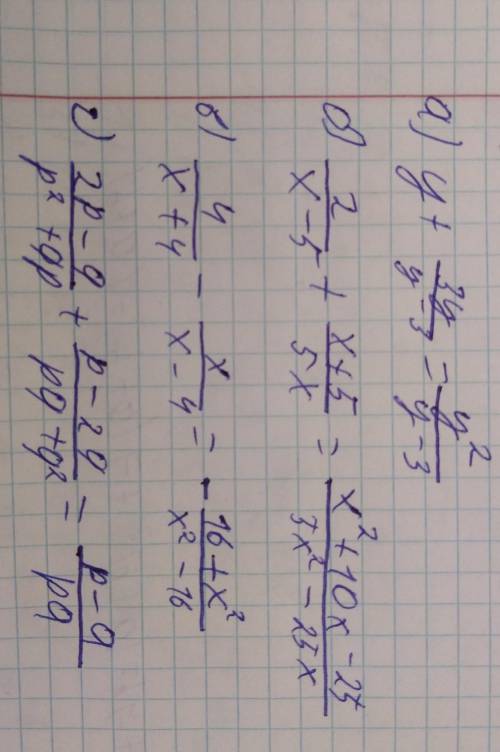 а) y + 3y/(y-3) = y²/(y-3)
б) 2/(x-5) + (x+5)/5x = (x²+10x-25)/(5x²-25x)
в) 4/(x+4) - x/(x-4) = -(16+x²)/(x²-16)
г) (2p-q)/(p²+qp) + (p-2q)/(pq+q²) = (p-q)/pq